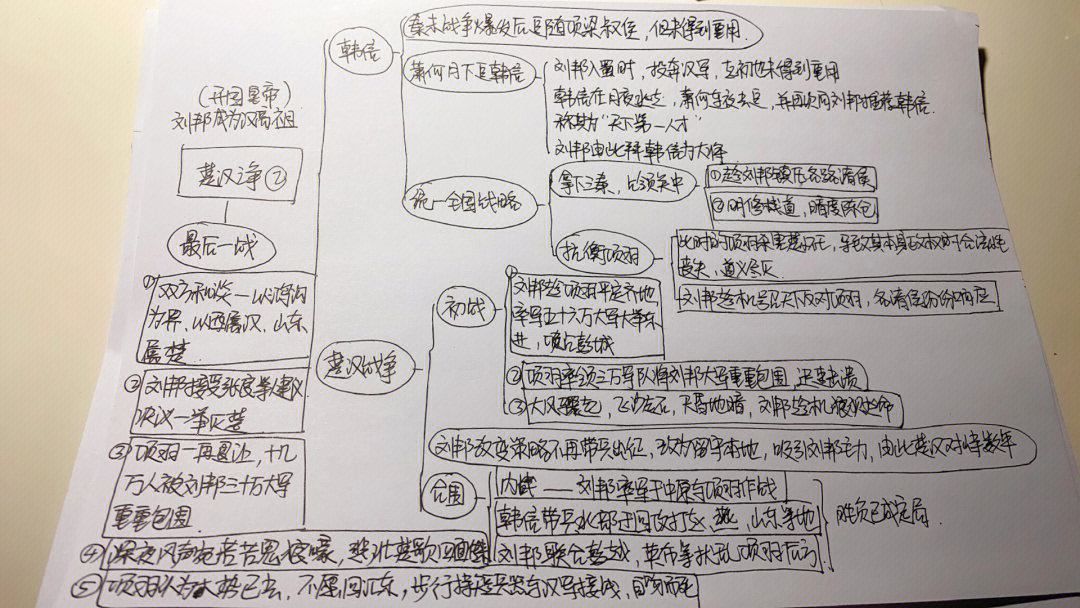 (开国皇帝)
刘邦成为汉高祖
楚汉之争②
最后一战
①双方和谈—以鸿沟
为界,以西属汉,山东
属楚
②刘邦接受张良等建议
决议一举灭楚
③项羽一再退让,十几
万人被刘邦三十万大军
重重包围
④深夜风声
四面楚歌
⑤项羽认为大势已去,不愿回江东,步行持短兵器与汉军接战,自刎而死
韩信
秦末战争爆发后追随项梁叔侄,但未得到重用
萧何月下追韩信
刘邦入蜀时,投奔汉军,起初也未得到重用
韩信在月夜出走,萧何连夜去追,并再次向刘邦推荐韩信
称其为“天下第一人才”
刘邦由此拜韩信为大将
统一全国战略
拿下三秦,必须关中
①趁刘邦
②明修栈道,暗度陈仓
抗衡项羽
此时的项羽杀害楚怀王,导致其本具政权的合法性
丧失,道义尽灭
刘邦趁机号召天下反对项羽,各诸侯纷纷响应
楚汉战争
初战
①
刘邦趁项羽平定齐地
率军五十六万大军大举东
进,攻占彭城
②项羽率领三万军队将刘邦大军重重包围,迅速击溃
③大风骤起,飞沙走石,天昏地暗,刘邦趁机狼狈逃命
刘邦改变策略不再带兵出征,改为留守本地,吸引刘邦主力,由此楚汉对峙数年
合围
内线——刘邦率军于中原与项羽作战
韩信带兵北部迂回攻打赵、燕、山东等地
刘邦联合彭越、英布等扰乱项羽后方
胜负已成定局